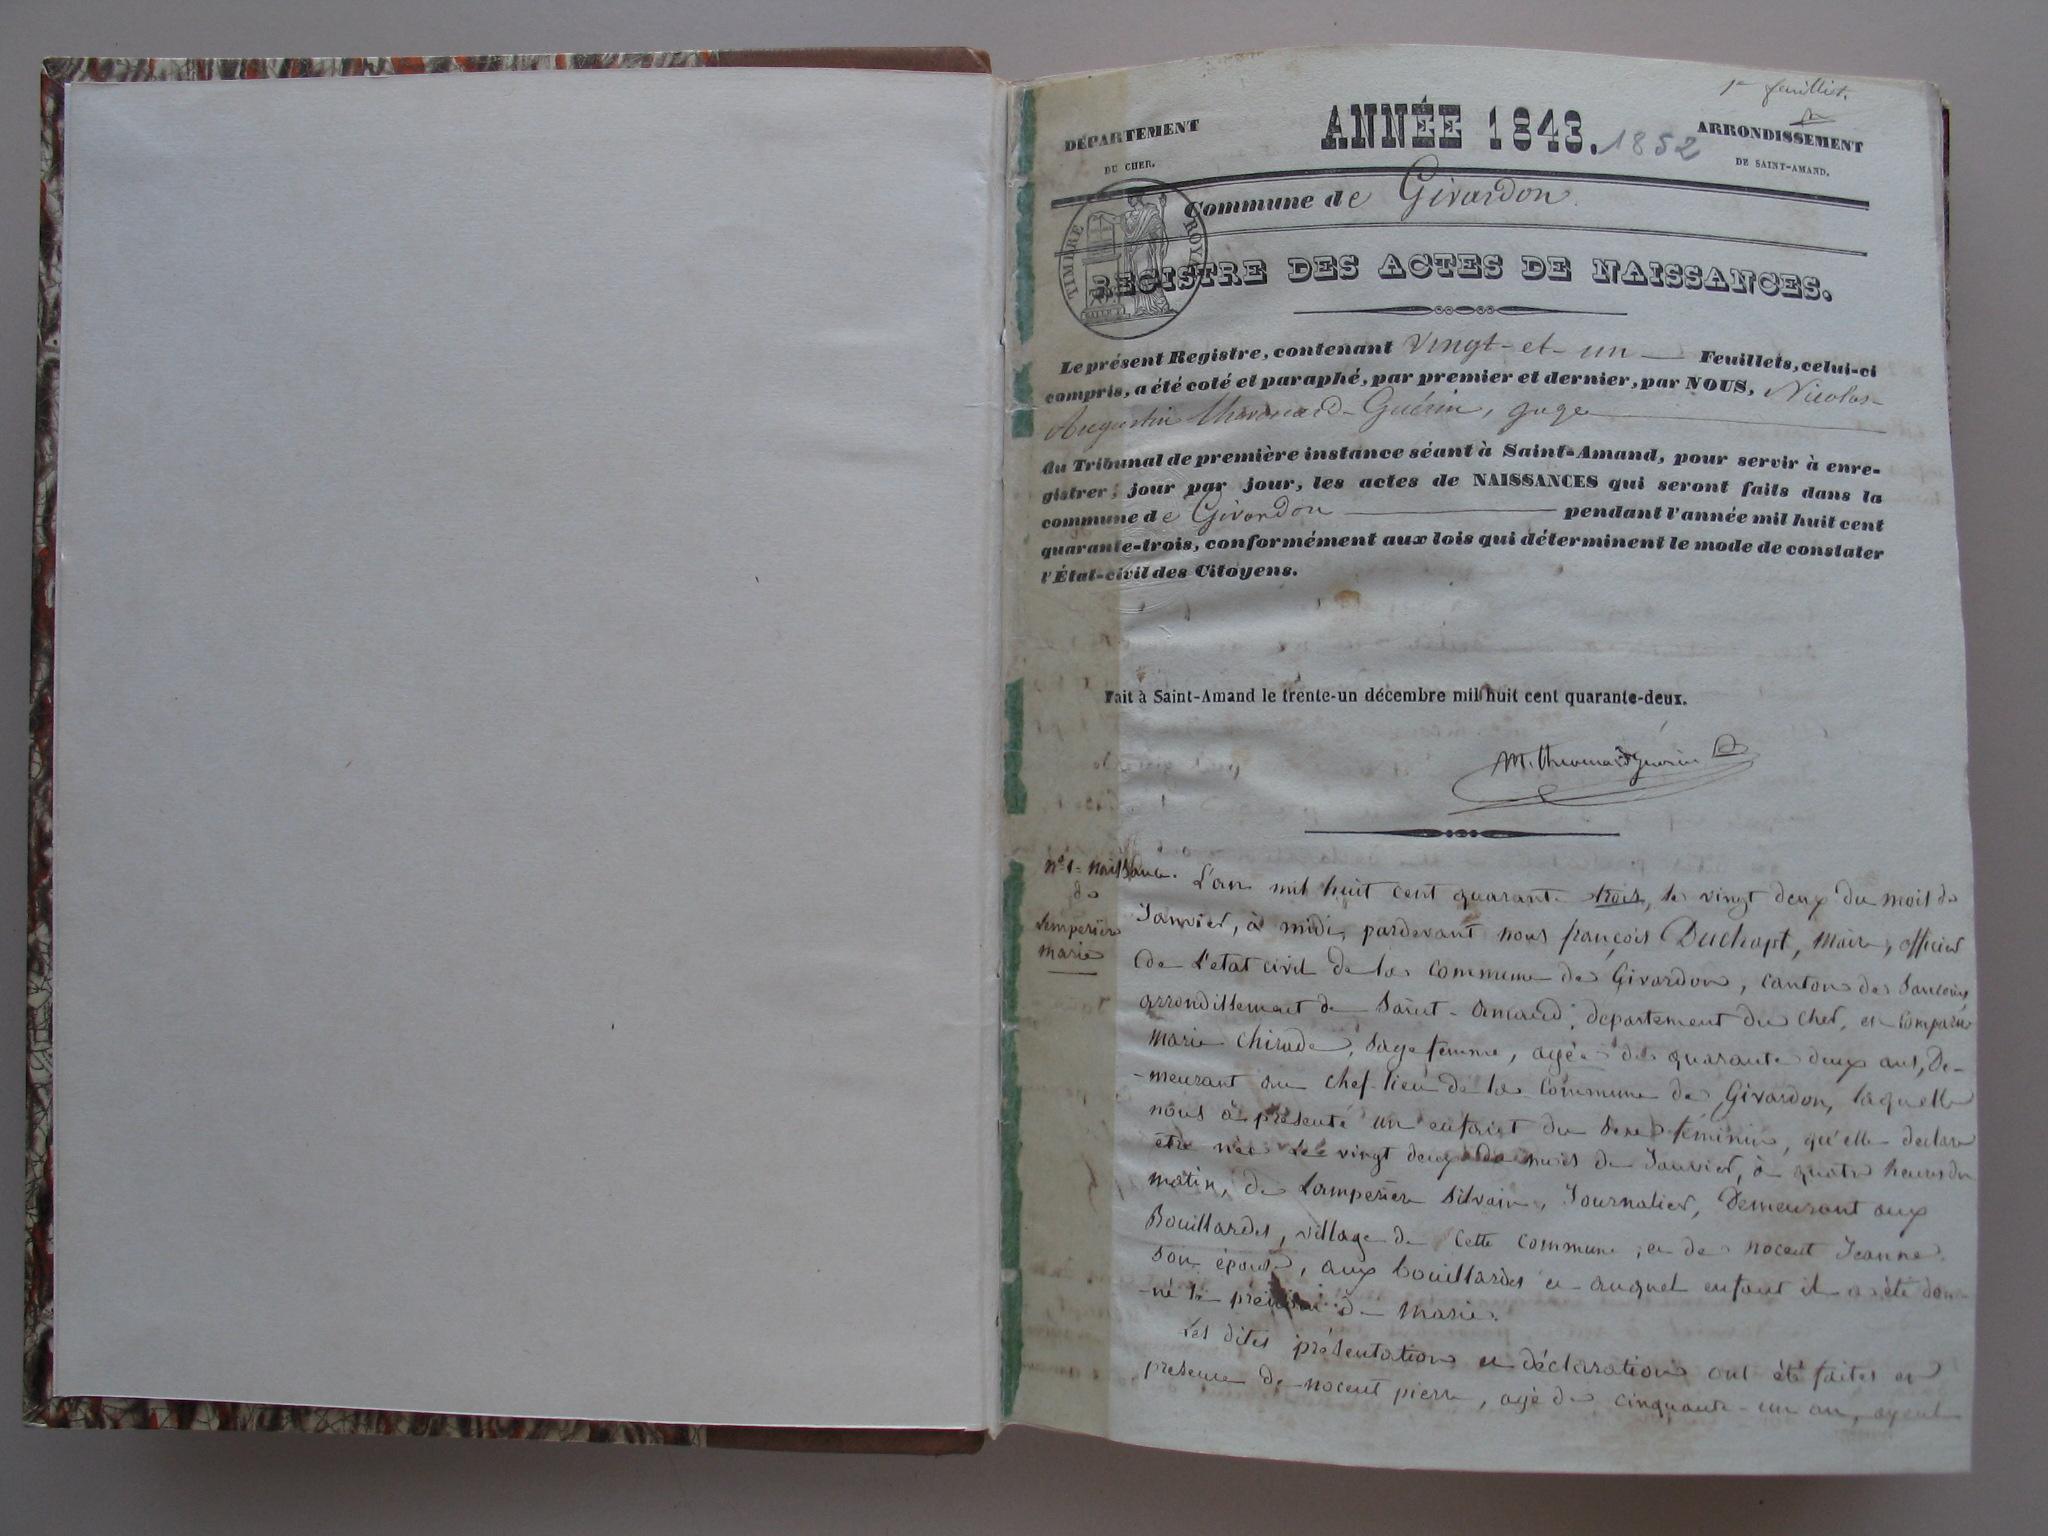 1er feuillet.
DÉPARTEMENT
DU CHER.
ANNÉE 1843. 1852
ARRONDISSEMENT
DE SAINT-AMAND.
Commune de Givardon.
TIMBRE ROYAL
REGISTRE DES ACTES DE NAISSANCES.
Le présent Registre, contenant vingt-et-un Feuillets, celui-ci
compris, a été coté et paraphé, par premier et dernier, par NOUS, Nicolas-
Augustin Thevenard-Guérin, juge
du Tribunal de première instance séant à Saint-Amand, pour servir à enre-
gistrer, jour par jour, les actes de NAISSANCES qui seront faits dans la
commune de Givardon pendant l'année mil huit cent
quarante-trois, conformément aux lois qui déterminent le mode de constater
l'État-civil des Citoyens.
Fait à Saint-Amand le trente-un décembre mil huit cent quarante-deux.
M. Thevenard Guérin
n° 1 - naissance.
de
Lemperière
marie
L'an mil huit cent quarante trois, le vingt deux du mois de
Janvier, à midi, pardevant nous françois Duchapt, Maire, officier
de L'etat civil de la commune de Givardon, canton de Sancoins,
arrondissement de Saint-amand, departement du cher, est comparue
Marie Chirade, Sage femme, agée de quarante deux ans, De-
-meurant au chef-lieu de la Commune de Givardon, laquelle
nous à présenté un enfant du Sexe féminin, qu'elle declare
être née Le vingt deux du mois de Janvier, à quatre heures du
matin, de Lamperière Silvain, Journalier, Demeurant aux
Bouillardes, village de cette commune, et de nocent Jeanne
Son épouse, aux bouillardes et auquel enfant il a été don-
-né le prénom de Marie.
Les dites présentation et déclaration ont été faites en
presence de nocent pierre, agé de cinquante-un an, ayeul